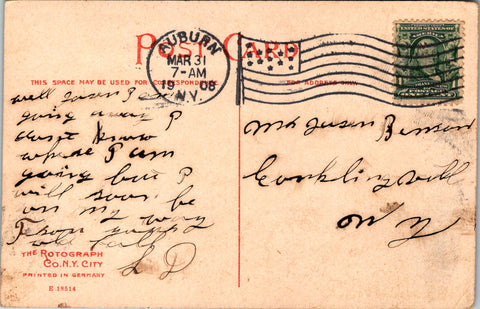 POST CARD
AUBURN
MAR 31
7-AM
1908
N.Y.
THIS SPACE MAY BE USED FOR CORRESPONDENCE
FOR ADDRESS ONLY
UNITED STATES OF AMERICA
well Jason I
going away I
dont know
where I am
going but I
will soon be
on my way
L D
Mr Jason Benson
Conklingvill
N Y
THE ROTOGRAPH
CO. N.Y. CITY
PRINTED IN GERMANY
E 18514